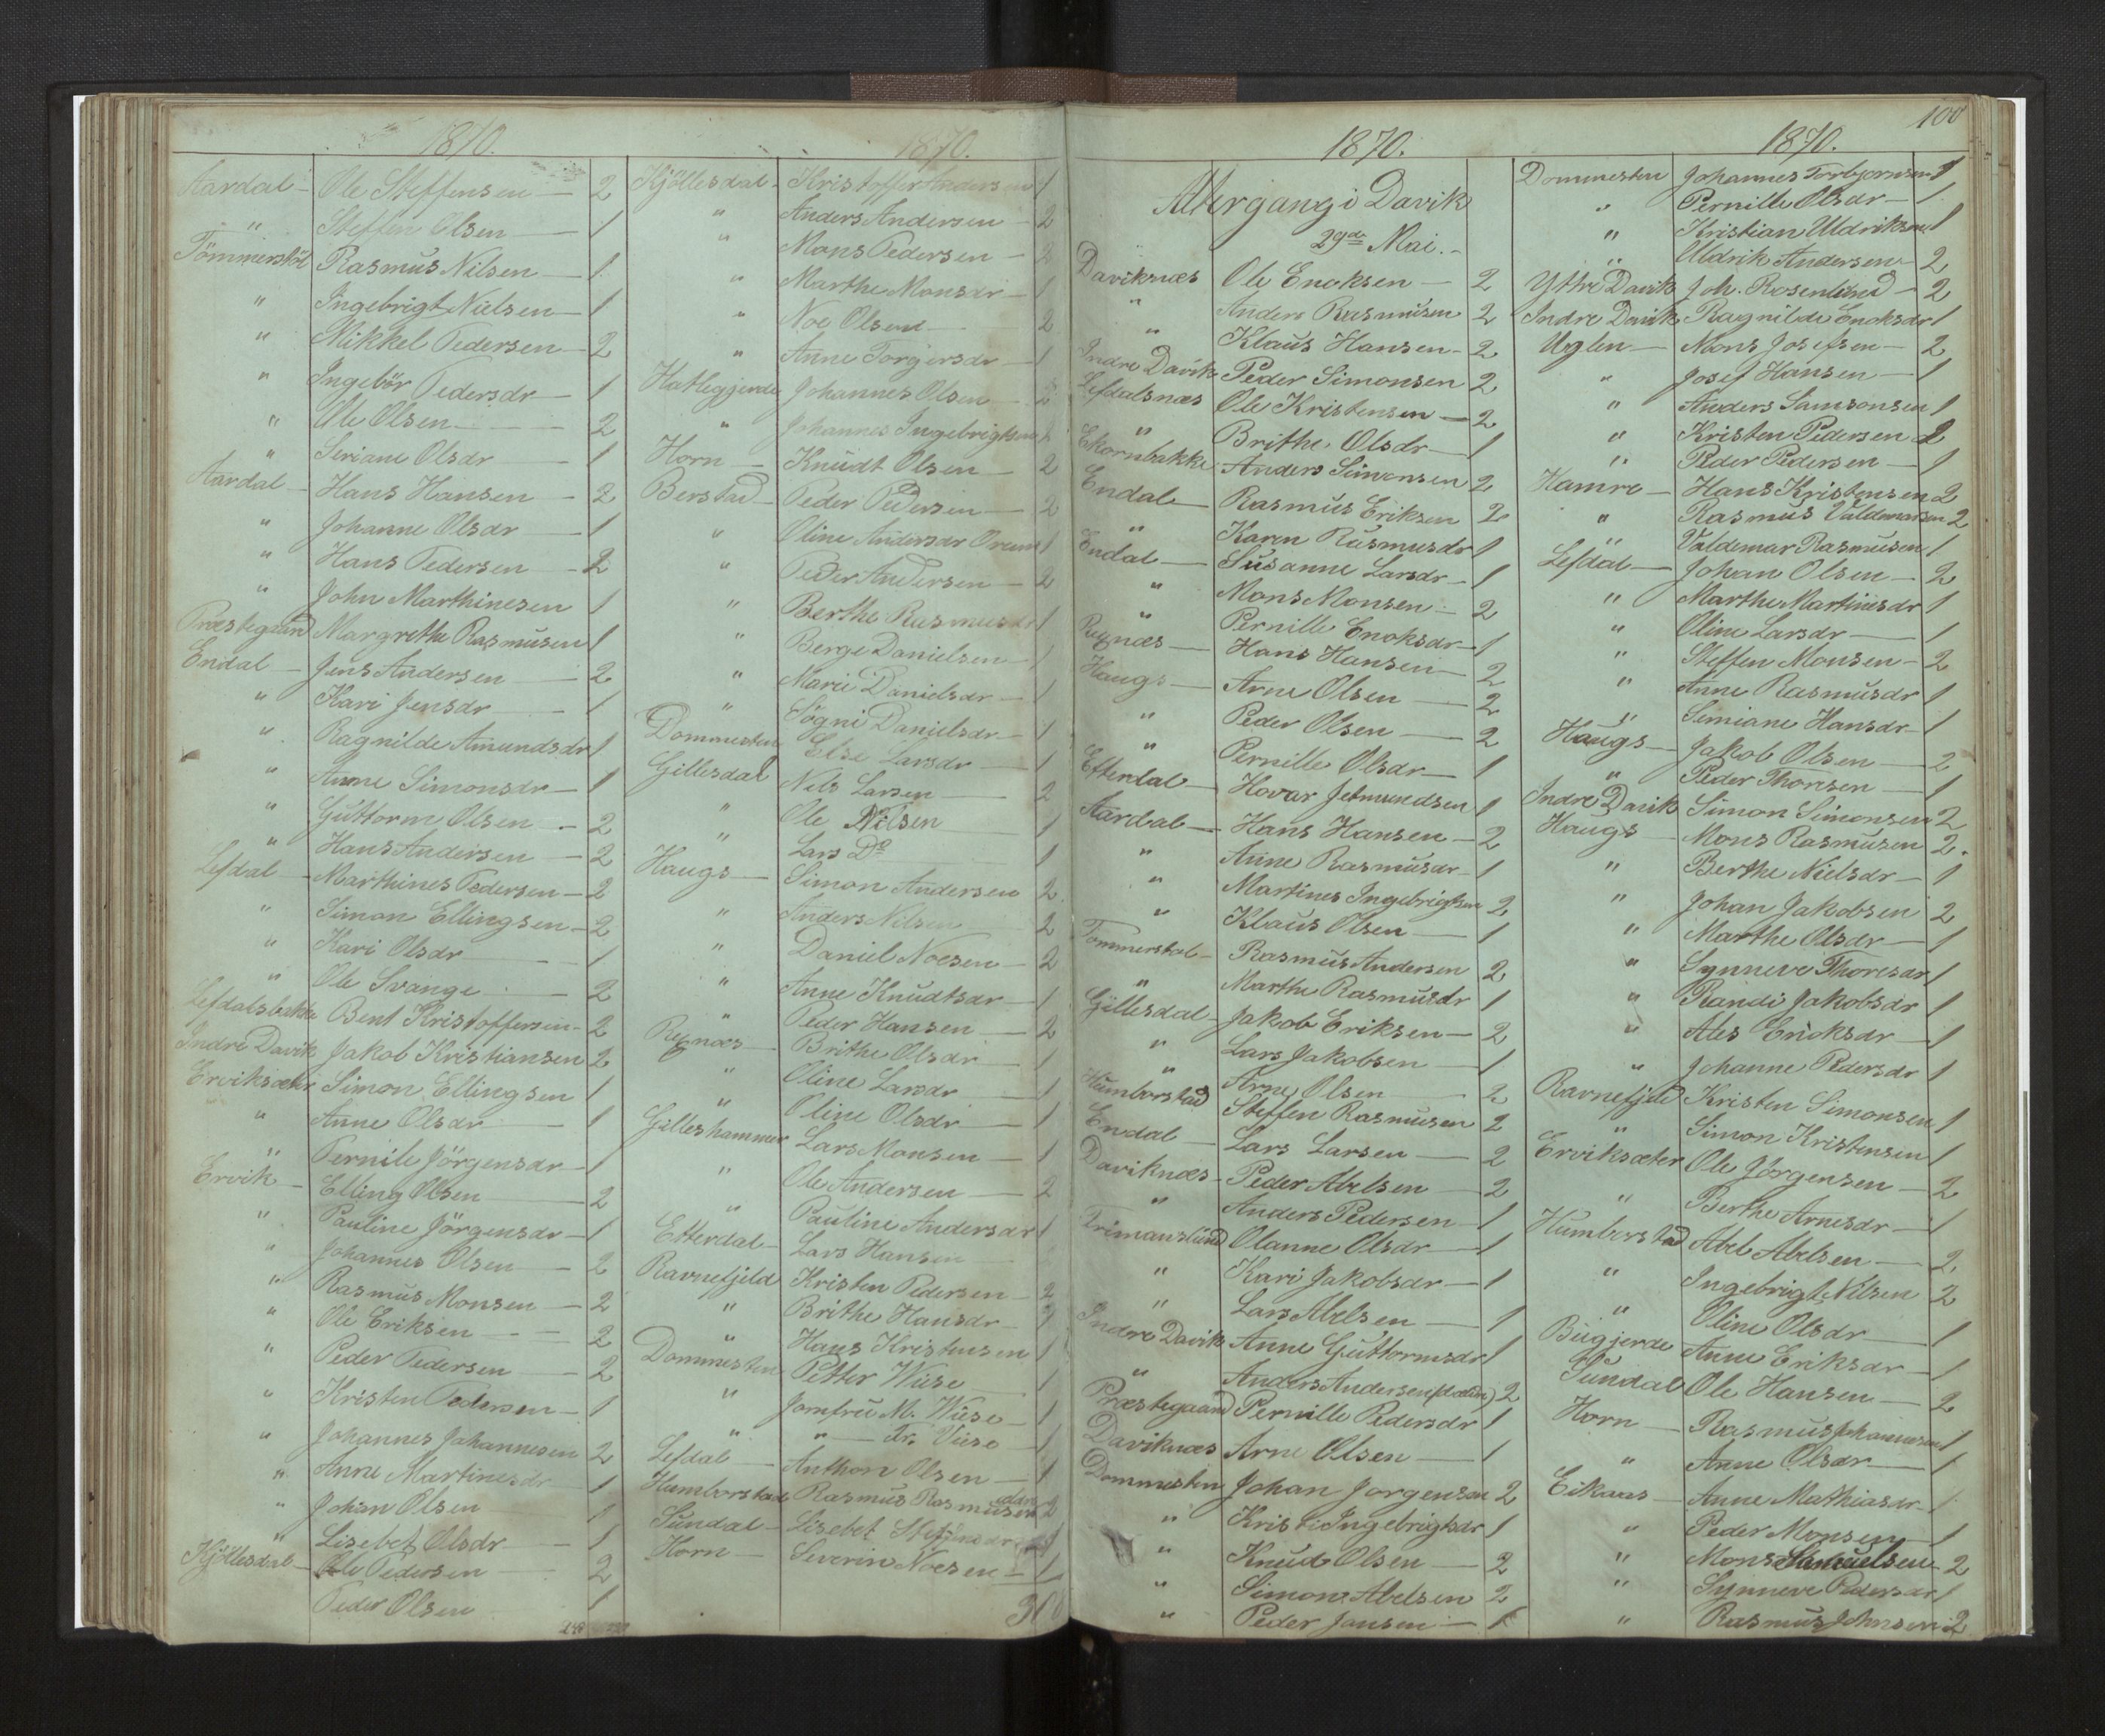 1870.
Aardal - Ole Steffensen - 2
" Steffen Olsen - 1
Tömmerstöl Rasmus Nilsen - 1
" Ingebrigt Nielsen - 1
" Mikkel Pedersen - 2
" Ingebör Pedersdr - 1
" Ole Olsen - 2
" Seriane Olsdr - 1
Aardal - Hans Hansen - 2
" Johanne Olsdr - 1
" Hans Pedersen - 2
" John Marthinesen 1
Præstegaard Margrethe Rasmusen 1
Endal - Jens Andersen - 2
" Kari Jensdr - 1
" Ragnilde Amundsdr 1
" Anne Simonsdr - 1
" Guttorm Olsen - 2
" Hans Andersen - 2
Lefdal - Marthines Pedersen - 2
" Simon Ellingsen - 2
" Kari Olsdr - 1
" Ole Svange - 2
Lefdalsbakke Bent Kristoffersen - 2
Indre Davik Jakob Kristiansen 2
Erviksæter Simon Ellingsen 1
" Anne Olsdr - 1
" Pernile Jörgensdr - 1
Ervik - Elling Olsen - 2
" Pauline Jörgensdr - 1
" Johannes Olsen - 2
" Rasmus Monsen - 2
" Ole Eriksen - 2
" Peder Pedersen - 2
" Kristen Pedersen - 1
" Johannes Johannesen 2
" Anne Martinesdr - 1
" Johan Olsen 1
" Lisebet Olsdr - 1
Kjöllesdal - Ole Pedersen - 2
Peder Olsen 1
1870.
Kjöllesdal - Kristoffer Andersen 1
" Anders Andersen - 2
" Mons Pedersen - 2
" Marthe Monsdr - 1
" Noe Olsen - 2
" Anne Torgersdr - 1
Hatlegjerde Johannes Olsen - 2
" Johannes Ingebrigtsen
Horn - Knudt Olsen - 2
Berstad - Peder Pedersen - 2
" Oline Andersdr 1
" Peder Andersen - 2
" Berthe Rasmusdr 1
" Berge Danielsen - 1
" Marie Danielsdr - 1
" Sögni Danielsdr - 1
Dommesten Else Larsdr - 1
Gillesdal Nils Larsen - 2
" Ole Nilsen 1
" Lars Do 1
Haugs - Simon Andersen 2
" Anders Nilsen 2
" Daniel Noesen - 2
" Anne Knudtsdr - 1
" Peder Hansen - 2
Regnæs - Brithe Olsdr - 1
" Oline Larsdr - 1
" Oline Olsdr - 1
Gilleshammer Lars Monsen - 1
" Ole Andersen - 2
" Pauline Andersdr 1
Etterdal - Lars Hansen
Ravnefjeld Kristen Pedersen - 2
" Brithe Hansdr -
" Hans Kristensen 1
Dommesten Petter Wiese 1
" Jomfru M. Wiese - 1
" " - Fr. Viise - 1
Lefdal - Anthon Olsen - 1
Humborstad Rasmus Rasmusen 2
Sundal - Lisebet Steffensdr 1
Horn - Severin Noesen - 1
1870.
Altergang i Davik
29de Mai. -
Daviknæs Ole Enoksen - 2
" Anders Rasmusen 2
" Klaus Hansen - 2
Indre Davik Peder Simonsen 2
Lefdalsnæs Ole Kristensen - 2
" Brithe Olsdr - 1
Ekornbakke Anders Simonsen 2
Endal - Rasmus Eriksen 2
" Karen Rasmusdr 1
Endal - Susanne Larsdr - 1
" Mons Monsen - 2
" Pernille Enoksdr - 1
Regnæs - Hans Hansen - 2
Haugs - Arne Olsen - 2
" Peder Olsen - 2
" Pernille Olsdr - 1
Etterdal - Hovar Jetmundsen 1
Aardal - Hans Hansen - 2
" Anne Rasmusdr - 1
" Martines Ingebrigtsen 2
" Klaus Olsen - 1
Tommerstol - Rasmus Andersen 2
" Marthe Rasmusdr 1
Gillesdal - Jakob Eriksen - 2
" Lars Jakobsen - 1
" Arne Olsen 2
Humborstad Steffen Rasmusen 2
Endal - Lars Larsen - 2
Daviknæs - Peder Abelsen - 2
" Anders Pedersen - 1
Frimanslund Olanne Olsdr - 1
" Kari Jakobsdr - 1
" Lars Abelsen - 1
Indre Davik Anne Guttormsdr 1
" Anders Andersen 2
Præstegaard Pernille Pedersdr 1
Daviknæs Arne Olsen - 1
Dommesten Johan Jorgensen 2
" Kristi Ingebrigtsdr 1
" Knud Olsen - 2
" Simon Abelsen 2
" Peder Jansen - 1
100
1870.
Dommesten Johannes Torbjornsen 1
" Pernille Olsdr - 1
" Kristian Uldriksen 1
" Uldrik Andersen - 2
Yttre Davik Joh. Rosenlund - 2
Indre Davik Ragnilde Enoksdr 1
Uglen - Mons Josefsen - 2
" Josef Hansen - 1
" Anders Samsonsen 1
" Kristen Pedersen 2
" Peder Pedersen - 1
Hamre - Hans Kristensen 2
" Rasmus Valdemarsen 2
" Valdemar Rasmusen 1
Lefdal - Johan Olsen - 2
" Marthe Martinesdr 1
" Oline Larsdr - 1
" Steffen Monsen - 2
" Anne Rasmusdr 1
" Simiane Hansdr - 1
Haugs - Jakob Olsen - 2
" Peder Thorsen - 1
Indre Davik Simon Simonsen 2
Haugs - Mons Rasmusen 2.
" Berthe Nielsdr - 1
" Johan Jakobsen 2
" Marthe Olsdr - 1
" Synneve Thoresdr 1
" Randi Jakobsdr 1
" Ales Ericksdr - 1
" Johanne Pedersdr 1
Ravnefjeld Kristen Simonsen 1
" Simon Kristensen 1
Erviksæter Ole Jörgensen - 2
" Berthe Arnesdr - 1
Humborstad Abel Abelsen - 2
" Ingebrigt Nilsen 2
" Oline Olsdr - 1
Bugjerde Anne Eriksdr - 1
Sundal Ole Hansen - 2
Horn - Rasmus Johannesen 1
" Anne Olsdr - 1
Eikaas - Anne Mathiasdr - 1
" Peder Monsen - 1
" Mons Samuelsen - 2
" Synneve Pedersdr 1
" Rasmus Johnsen - 2